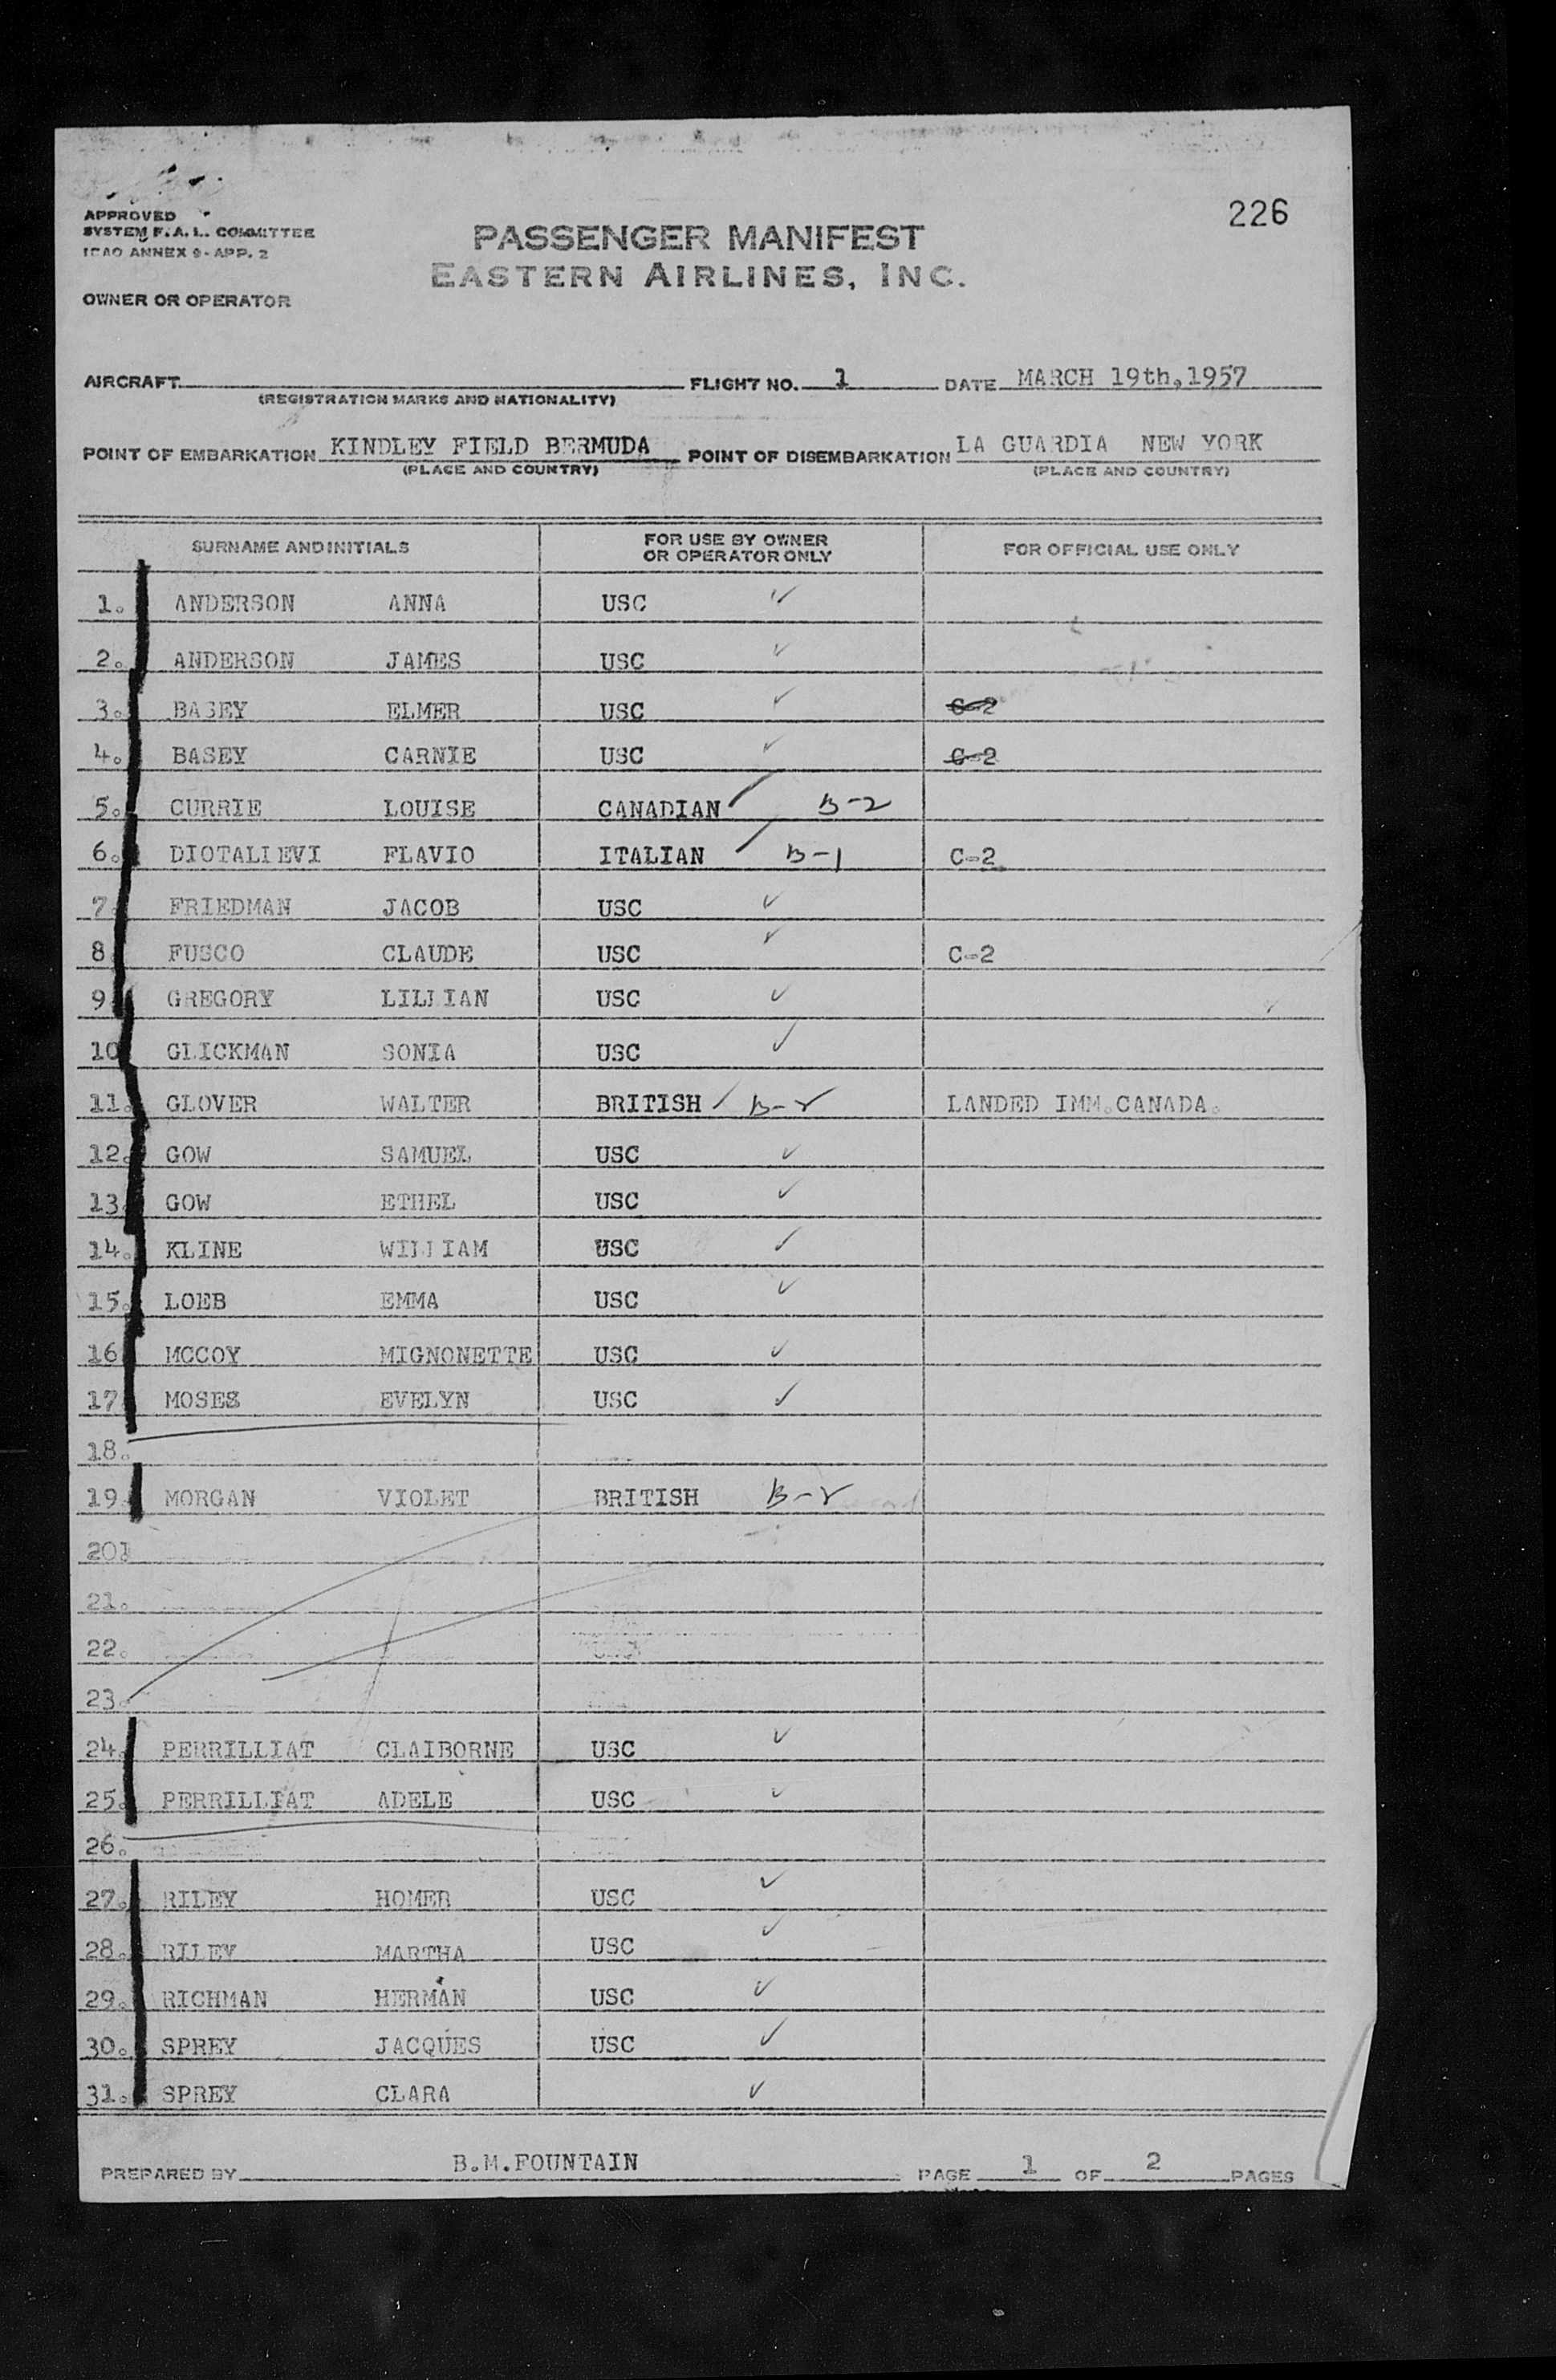 226
APPROVED
SYSTEM F.A.L. COMMITTEE
ICAO ANNEX 9-APP. 2
PASSENGER MANIFEST
EASTERN AIRLINES, INC.
OWNER OR OPERATOR
AIRCRAFT FLIGHT NO. 1 DATE MARCH 19th,1957
(REGISTRATION MARKS AND NATIONALITY)
POINT OF EMBARKATION KINDLEY FIELD BERMUDA POINT OF DISEMBARKATION LA GUARDIA NEW YORK
(PLACE AND COUNTRY) (PLACE AND COUNTRY)
SURNAME AND INITIALS FOR USE BY OWNER OR OPERATOR ONLY FOR OFFICIAL USE ONLY
1. ANDERSON ANNA USC ✓
2. ANDERSON JAMES USC ✓
3. BASEY ELMER USC ✓ C-2
4. BASEY CARNIE USC ✓ C-2
5. CURRIE LOUISE CANADIAN ✓ B-2
6. DIOTALLEVI FLAVIO ITALIAN ✓ B-1 C-2
7. FRIEDMAN JACOB USC ✓
8 FUSCO CLAUDE USC ✓ C-2
9 GREGORY LILLIAN USC ✓
10 GLICKMAN SONIA USC ✓
11. GLOVER WALTER BRITISH ✓ B-2 LANDED IMM.CANADA.
12. GOW SAMUEL USC ✓
13. GOW ETHEL USC ✓
14. KLINE WILLIAM USC ✓
15. LOEB EMMA USC ✓
16 MCCOY MIGNONETTE USC ✓
17 MOSES EVELYN USC ✓
18.
19. MORGAN VIOLET BRITISH B-2
20.
21.
22.
23.
24. PERRILLIAT CLAIBORNE USC ✓
25. PERRILLIAT ADELE USC ✓
26.
27. RILEY HOMER USC ✓
28. RILEY MARTHA USC ✓
29. RICHMAN HERMAN USC ✓
30. SPREY JACQUES USC ✓
31. SPREY CLARA ✓
PREPARED BY B.M.FOUNTAIN PAGE 1 OF 2 PAGES